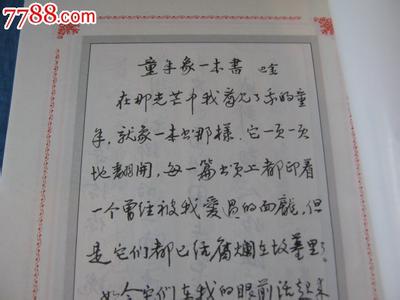 7788.com
童年象一本書 巴金
在那光芒中我看見了我的童
年，就象一本书那樣，它一頁一頁
地翻開，每一篇书頁上都印着
一个曾经被我愛過的面龐，但
是它们都已经腐爛在坟墓里了。
如今它们在我的眼前活起来